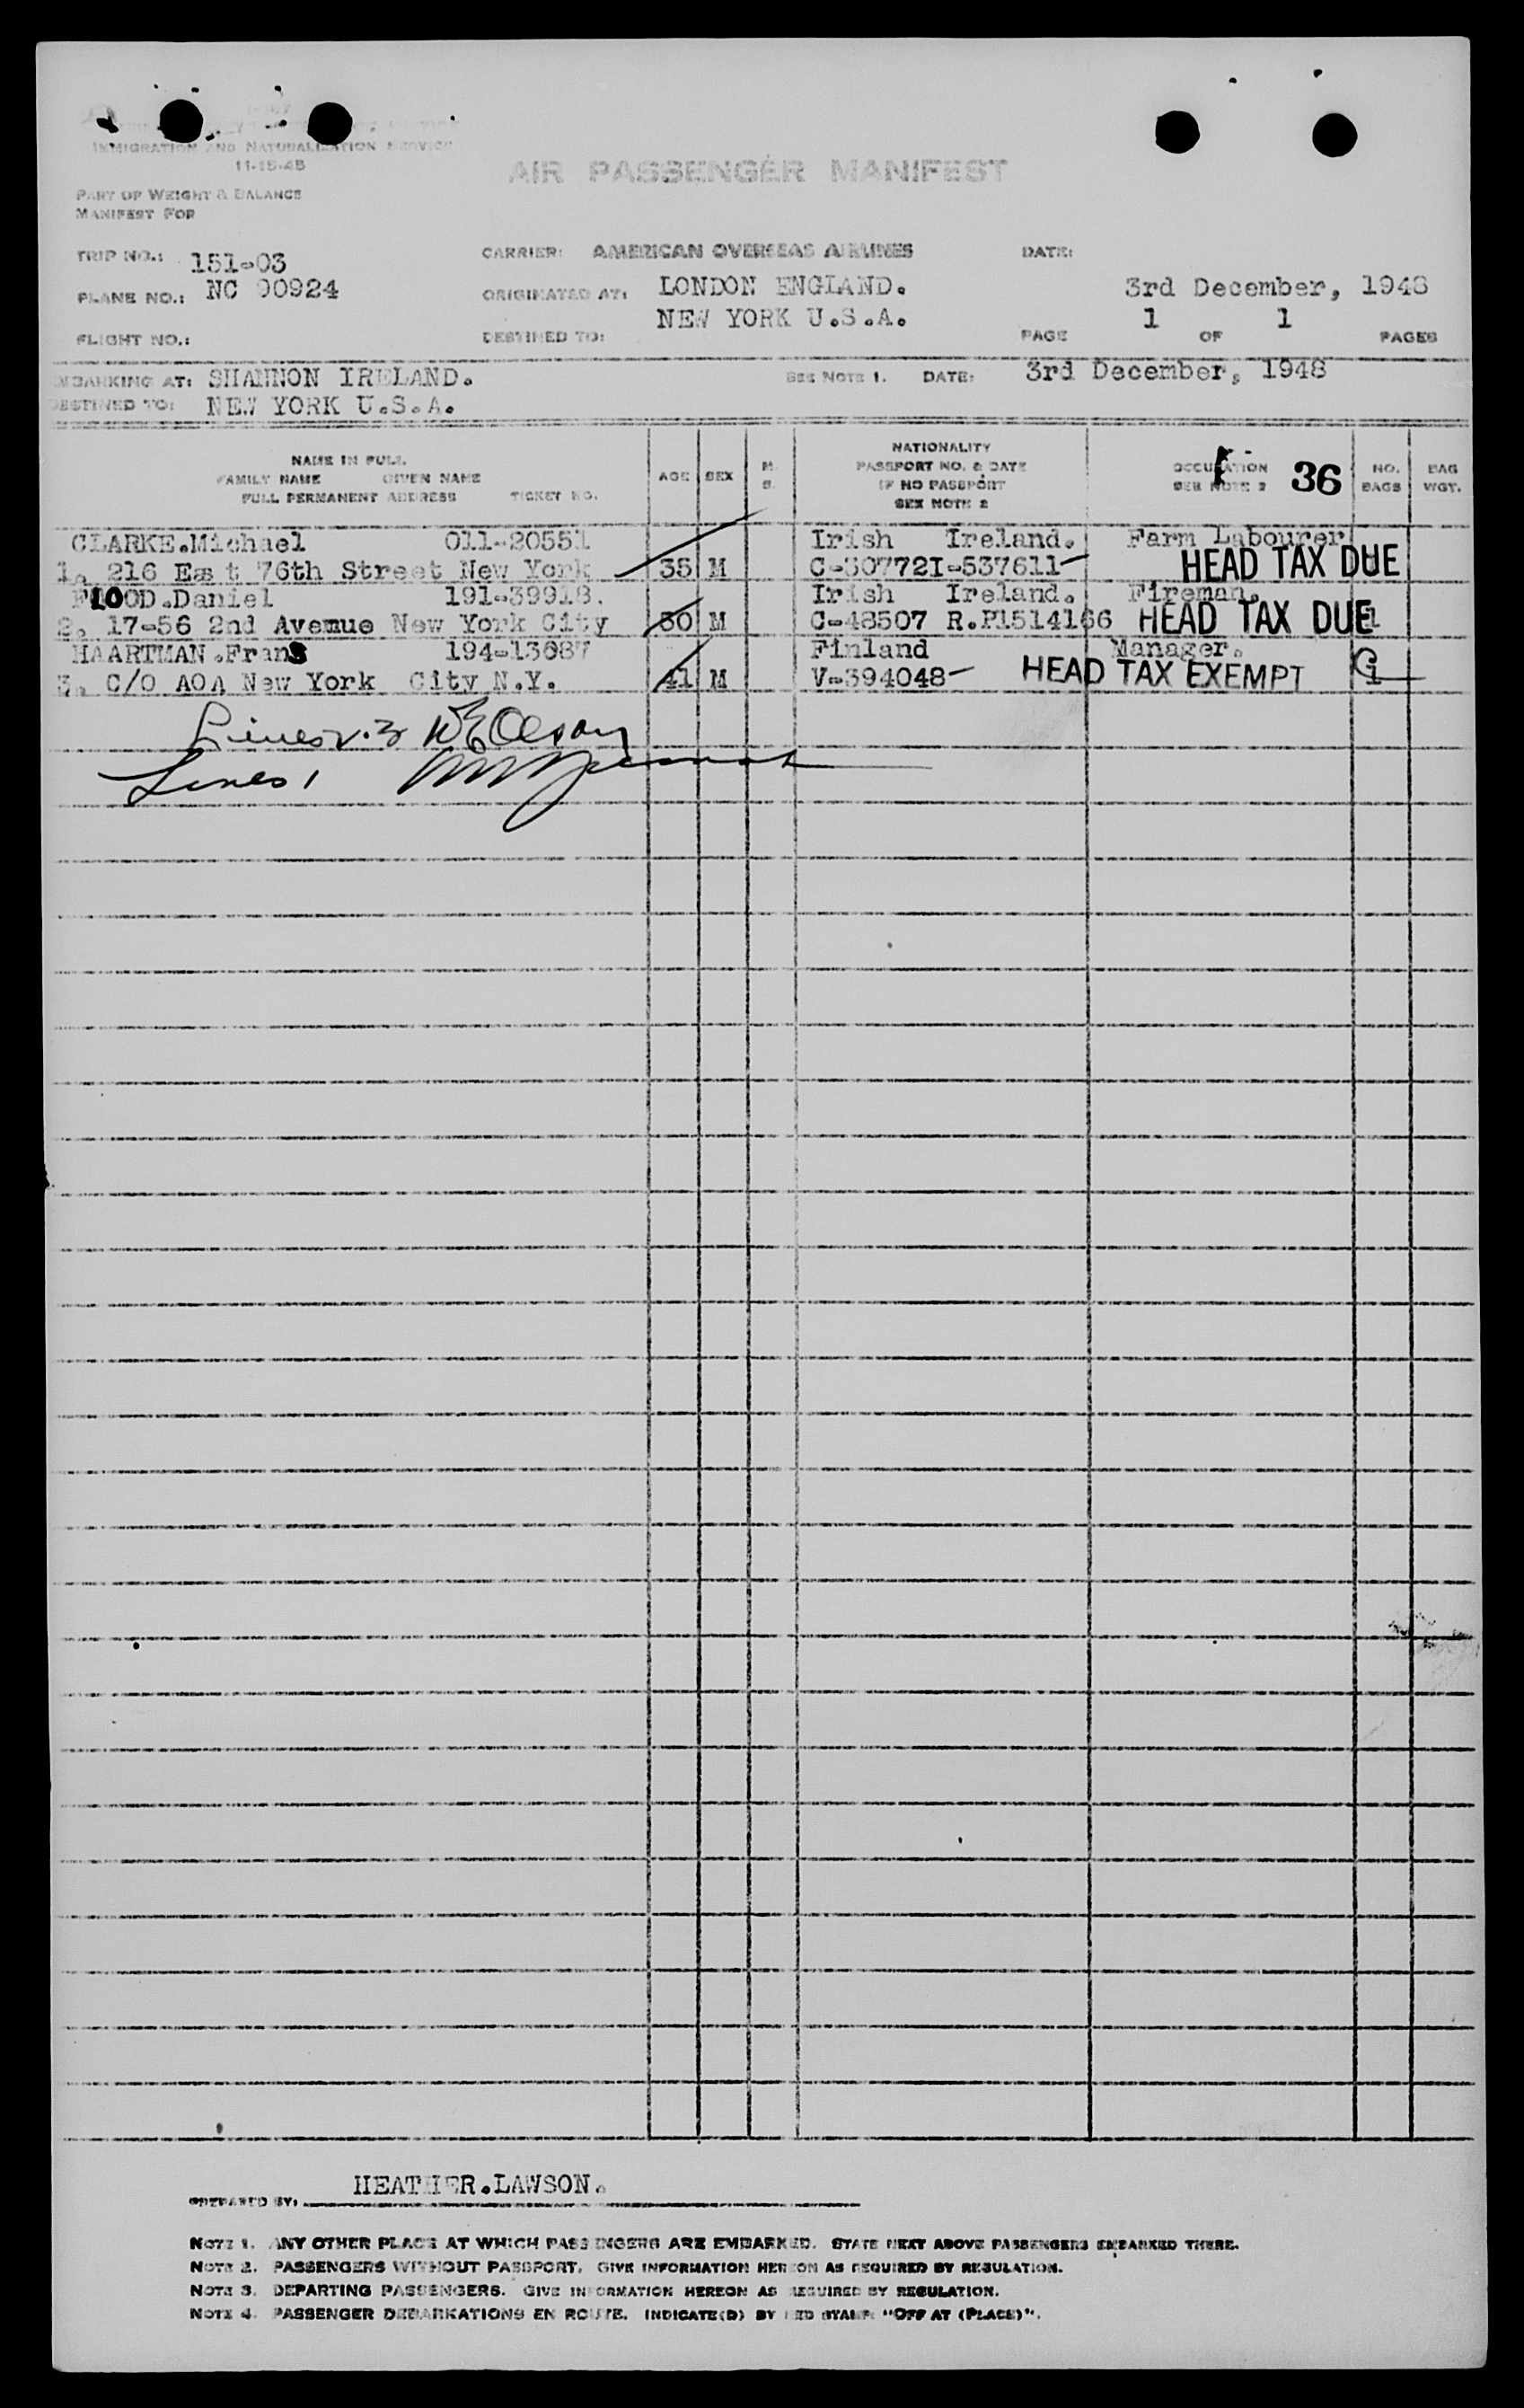 IMMIGRATION AND NATURALIZATION SERVICE
11-15-45
AIR PASSENGER MANIFEST
PART OF WEIGHT & BALANCE
MANIFEST FOR
TRIP NO.: 151-03 CARRIER: AMERICAN OVERSEAS AIRLINES DATE:
PLANE NO.: NC 90924 ORIGINATED AT: LONDON ENGLAND. 3rd December, 1948
FLIGHT NO.: DESTINED TO: NEW YORK U.S.A. PAGE 1 OF 1 PAGES
EMBARKING AT: SHANNON IRELAND. SEE NOTE 1. DATE: 3rd December, 1948
DESTINED TO: NEW YORK U.S.A.
NAME IN FULL
FAMILY NAME GIVEN NAME
FULL PERMANENT ADDRESS TICKET NO.
AGE SEX M. S.
NATIONALITY
PASSPORT NO. & DATE
IF NO PASSPORT
SEE NOTE 2
OCCUPATION
SEE NOTE 2 36
NO. BAGS
BAG WGT.
CLARKE.Michael 011-20551 Irish Ireland. Farm Labourer
1. 216 East 76th Street New York 35 M C-30772I-537611 HEAD TAX DUE
FLOOD.Daniel 191-39918. Irish Ireland. Fireman.
2. 17-56 2nd Avemue New York City 30 M C-48507 R.P1514166 HEAD TAX DUE 1
HAARTMAN.Frans 194-13687 Finland Manager.
3. C/O AOA New York City N.Y. 41 M V-394048 HEAD TAX EXEMPT 1
Lines 2.3 WE Olson
Lines 1
PREPARED BY: HEATHER.LAWSON.
NOTE 1. ANY OTHER PLACE AT WHICH PASSENGERS ARE EMBARKED. STATE NEXT ABOVE PASSENGERS EMBARKED THERE.
NOTE 2. PASSENGERS WITHOUT PASSPORT. GIVE INFORMATION HEREON AS REQUIRED BY REGULATION.
NOTE 3. DEPARTING PASSENGERS. GIVE INFORMATION HEREON AS REQUIRED BY REGULATION.
NOTE 4. PASSENGER DEBARKATIONS EN ROUTE. INDICATE(D) BY RED STAMP: "OFF AT (PLACE)".